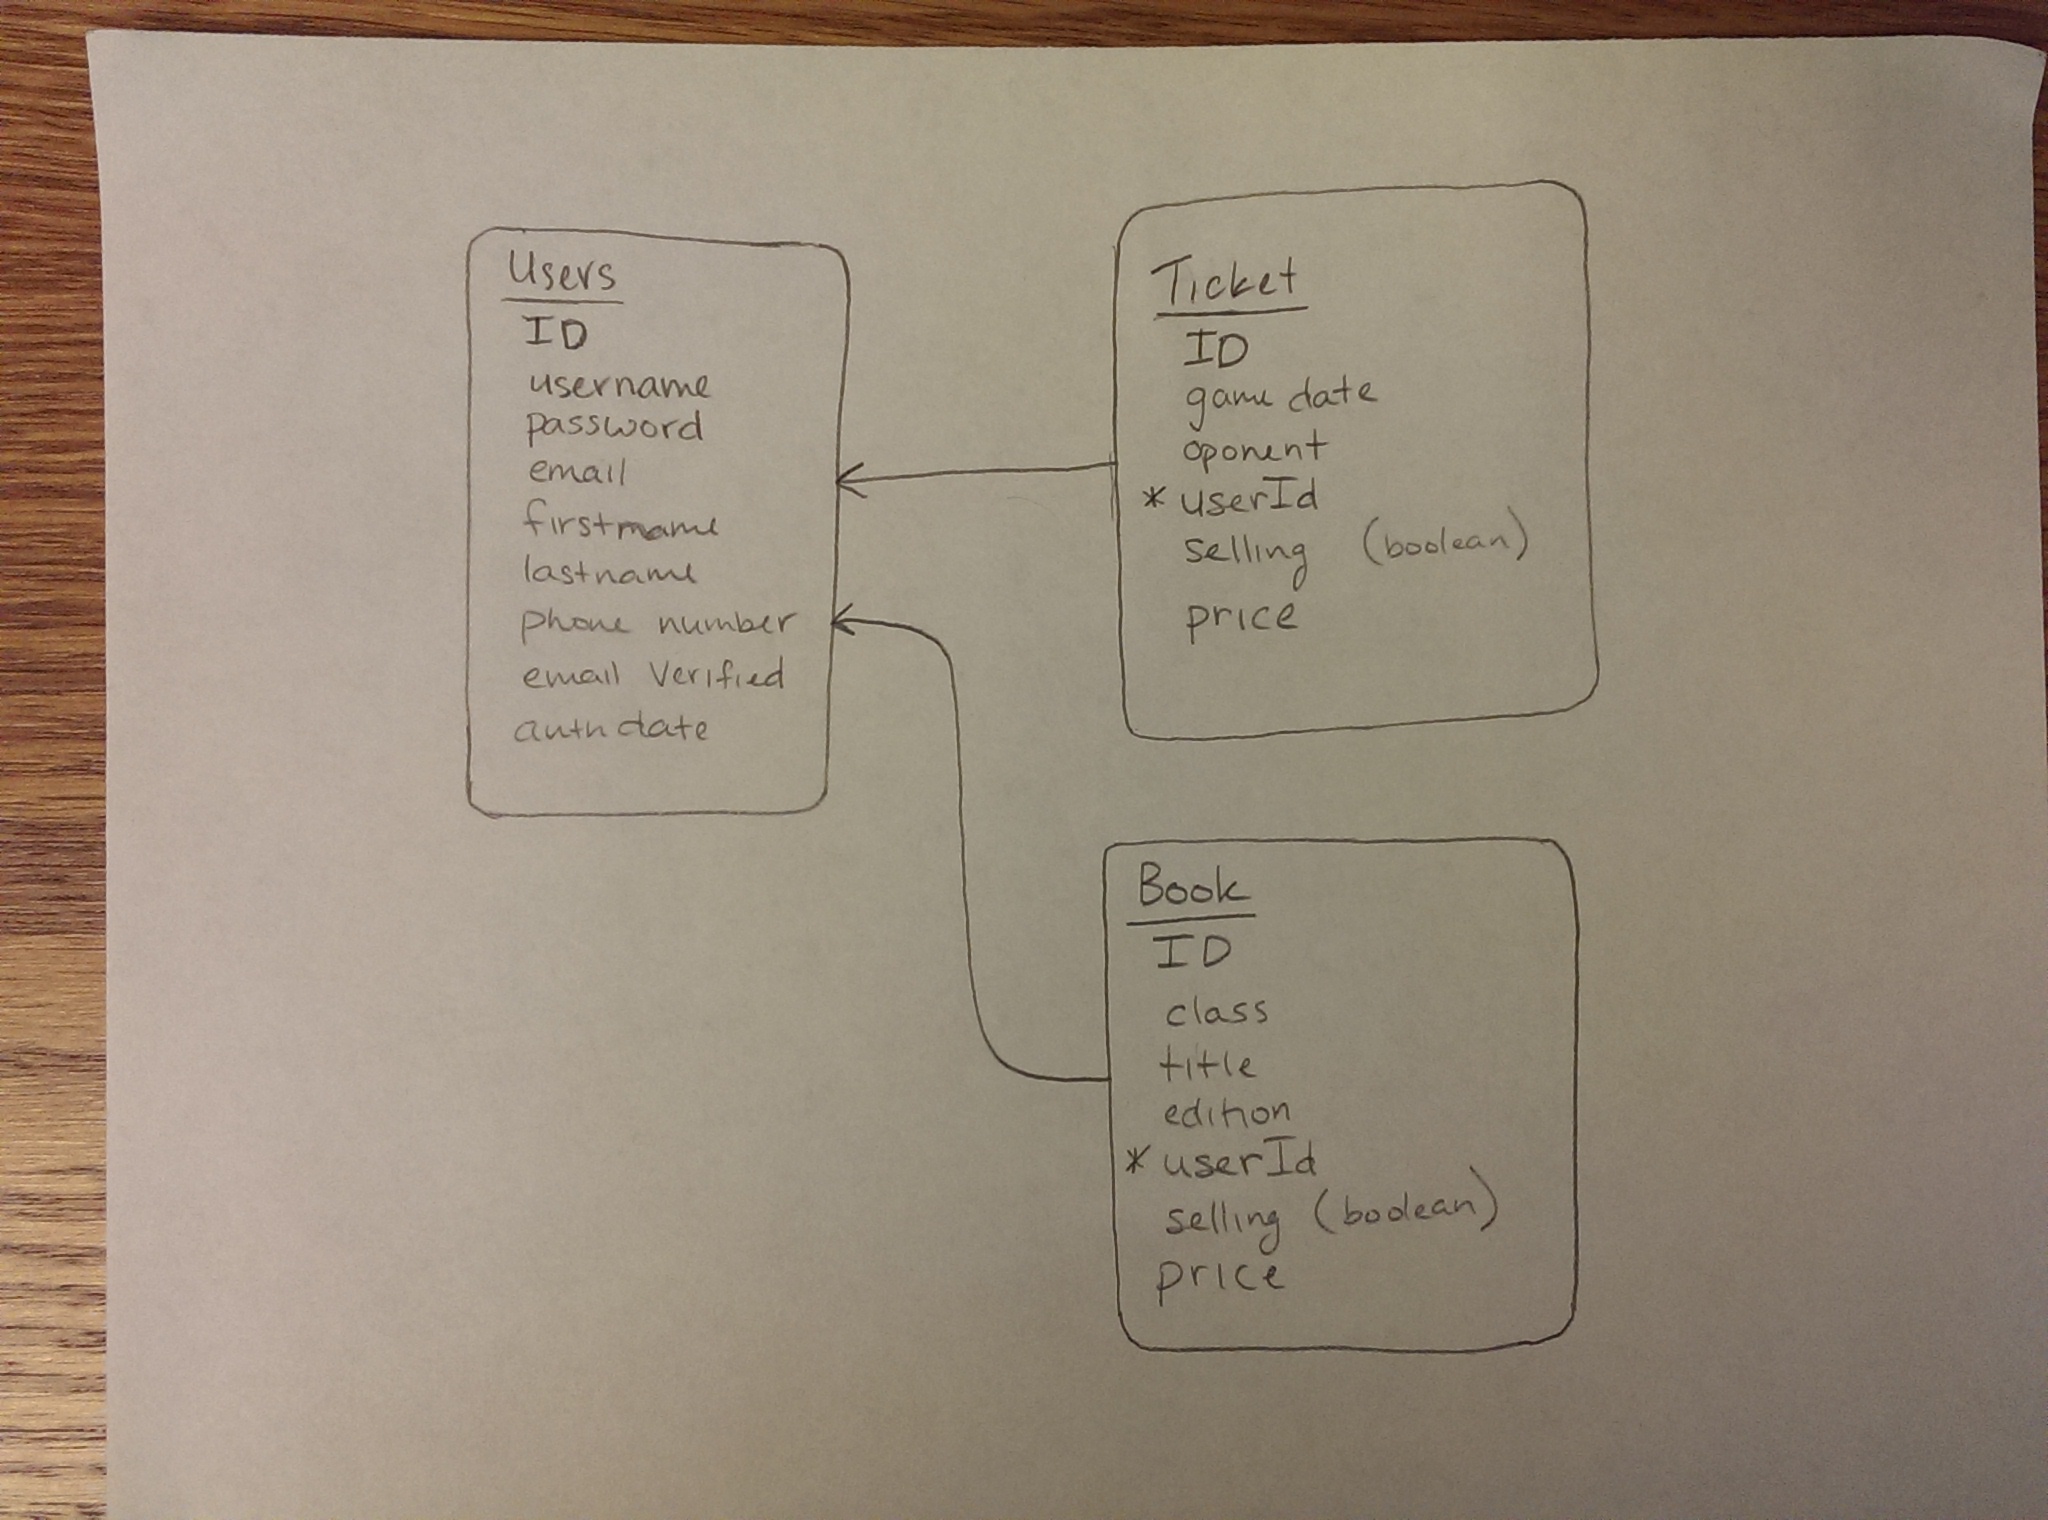 Users
ID
username
password
email
firstname
lastname
phone number
email Verified
auth date
Ticket
ID
game date
oponent
* userId
selling (boolean)
price
Book
ID
class
title
edition
* userId
selling (boolean)
price